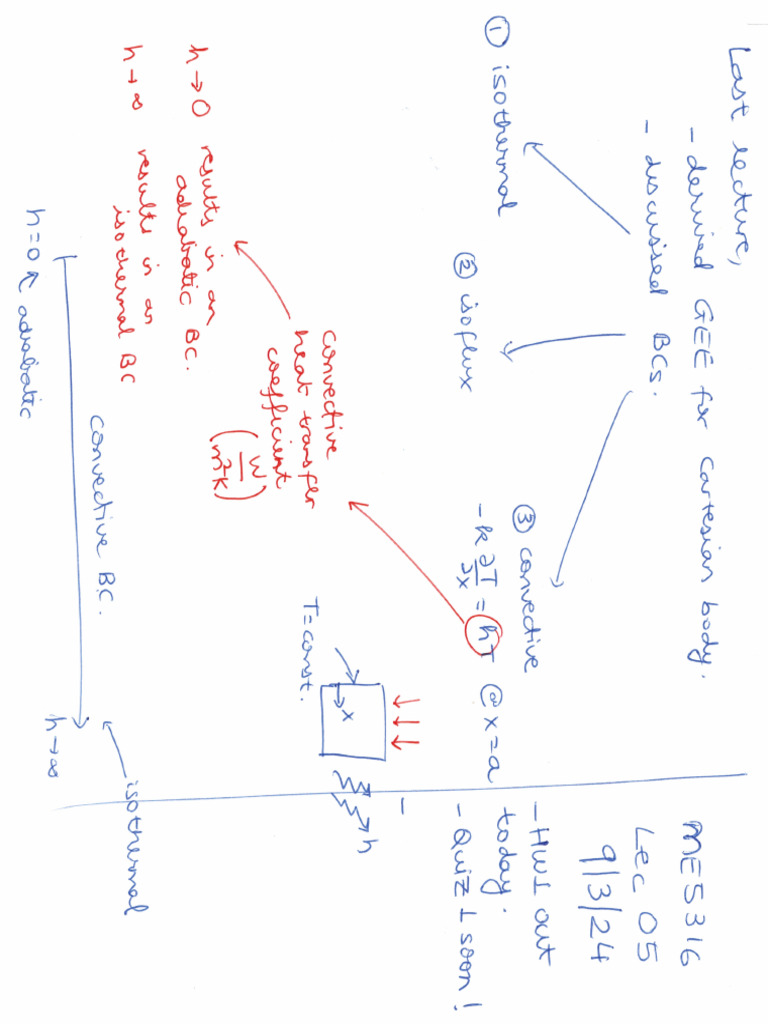 Last lecture,
- derived GEE for Cartesian body.
- discussed BCs.
① isothermal
② isoflux
③ convective
-k ∂T/∂x = hT @ x=a
convective
heat transfer
coefficient
(W/m²K)
h→0 results in an
adiabatic BC.
h→∞ results in an
isothermal BC
T=const.
x
h
convective B.C.
h=0 adiabatic
h→∞
isothermal
ME5316
Lec 05
9/3/24
- HW1 out
today.
- Quiz 1 soon!